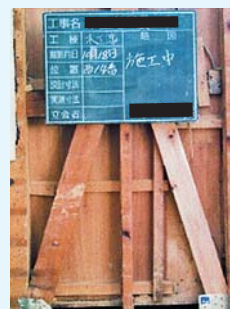 工事名
工種 木工事
略図
撮影月日 10月18日
施工中
位置
設計寸法
実測寸法
立会者